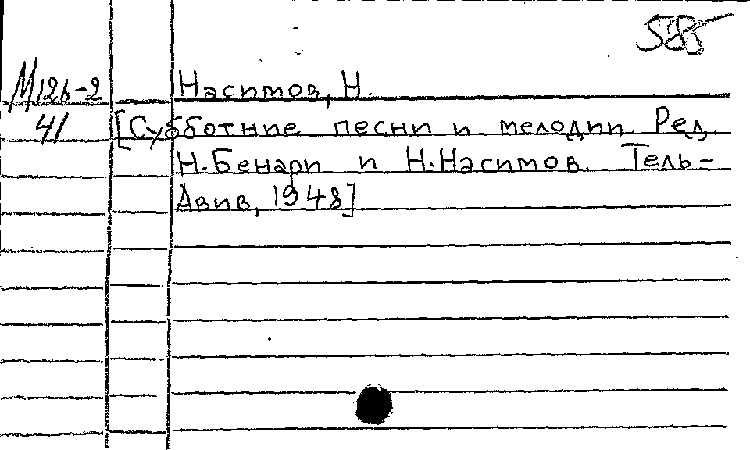 585
М12б-2 Насимов, Н.
41 [Субботние песни и мелодии. Ред.
Н.Бенари и Н.Насимов. Тель-
Авив, 1948]